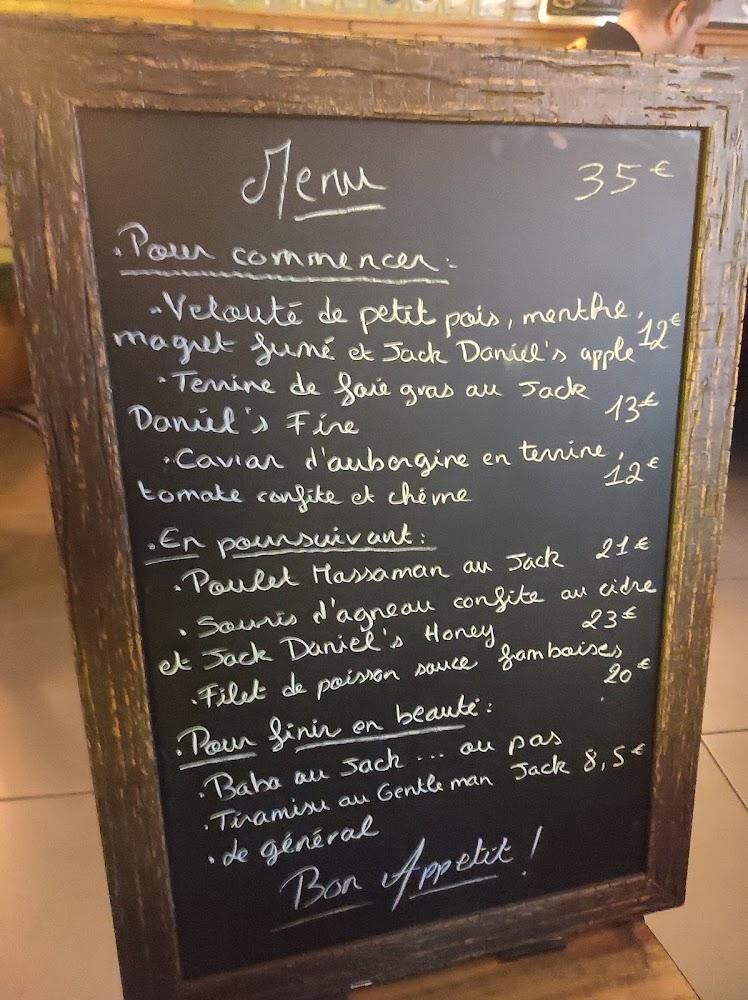 Menu 35€
. Pour commencer :
. Velouté de petit pois, menthe,
magret fumé et Jack Daniel's apple 12€
. Terrine de foie gras au Jack
Daniel's Fire 13€
. Caviar d'aubergine en terrine,
tomate confite et chévre 12€
. En poursuivant :
. Poulet Massaman au Jack 21€
. Souris d'agneau confite au cidre
et Jack Daniel's Honey 23€
. Filet de poisson sauce framboises
20€
. Pour finir en beauté :
. Baba au Jack ... ou pas
. Tiramisu au Gentleman Jack 8,5€
. Le général
Bon Appetit !